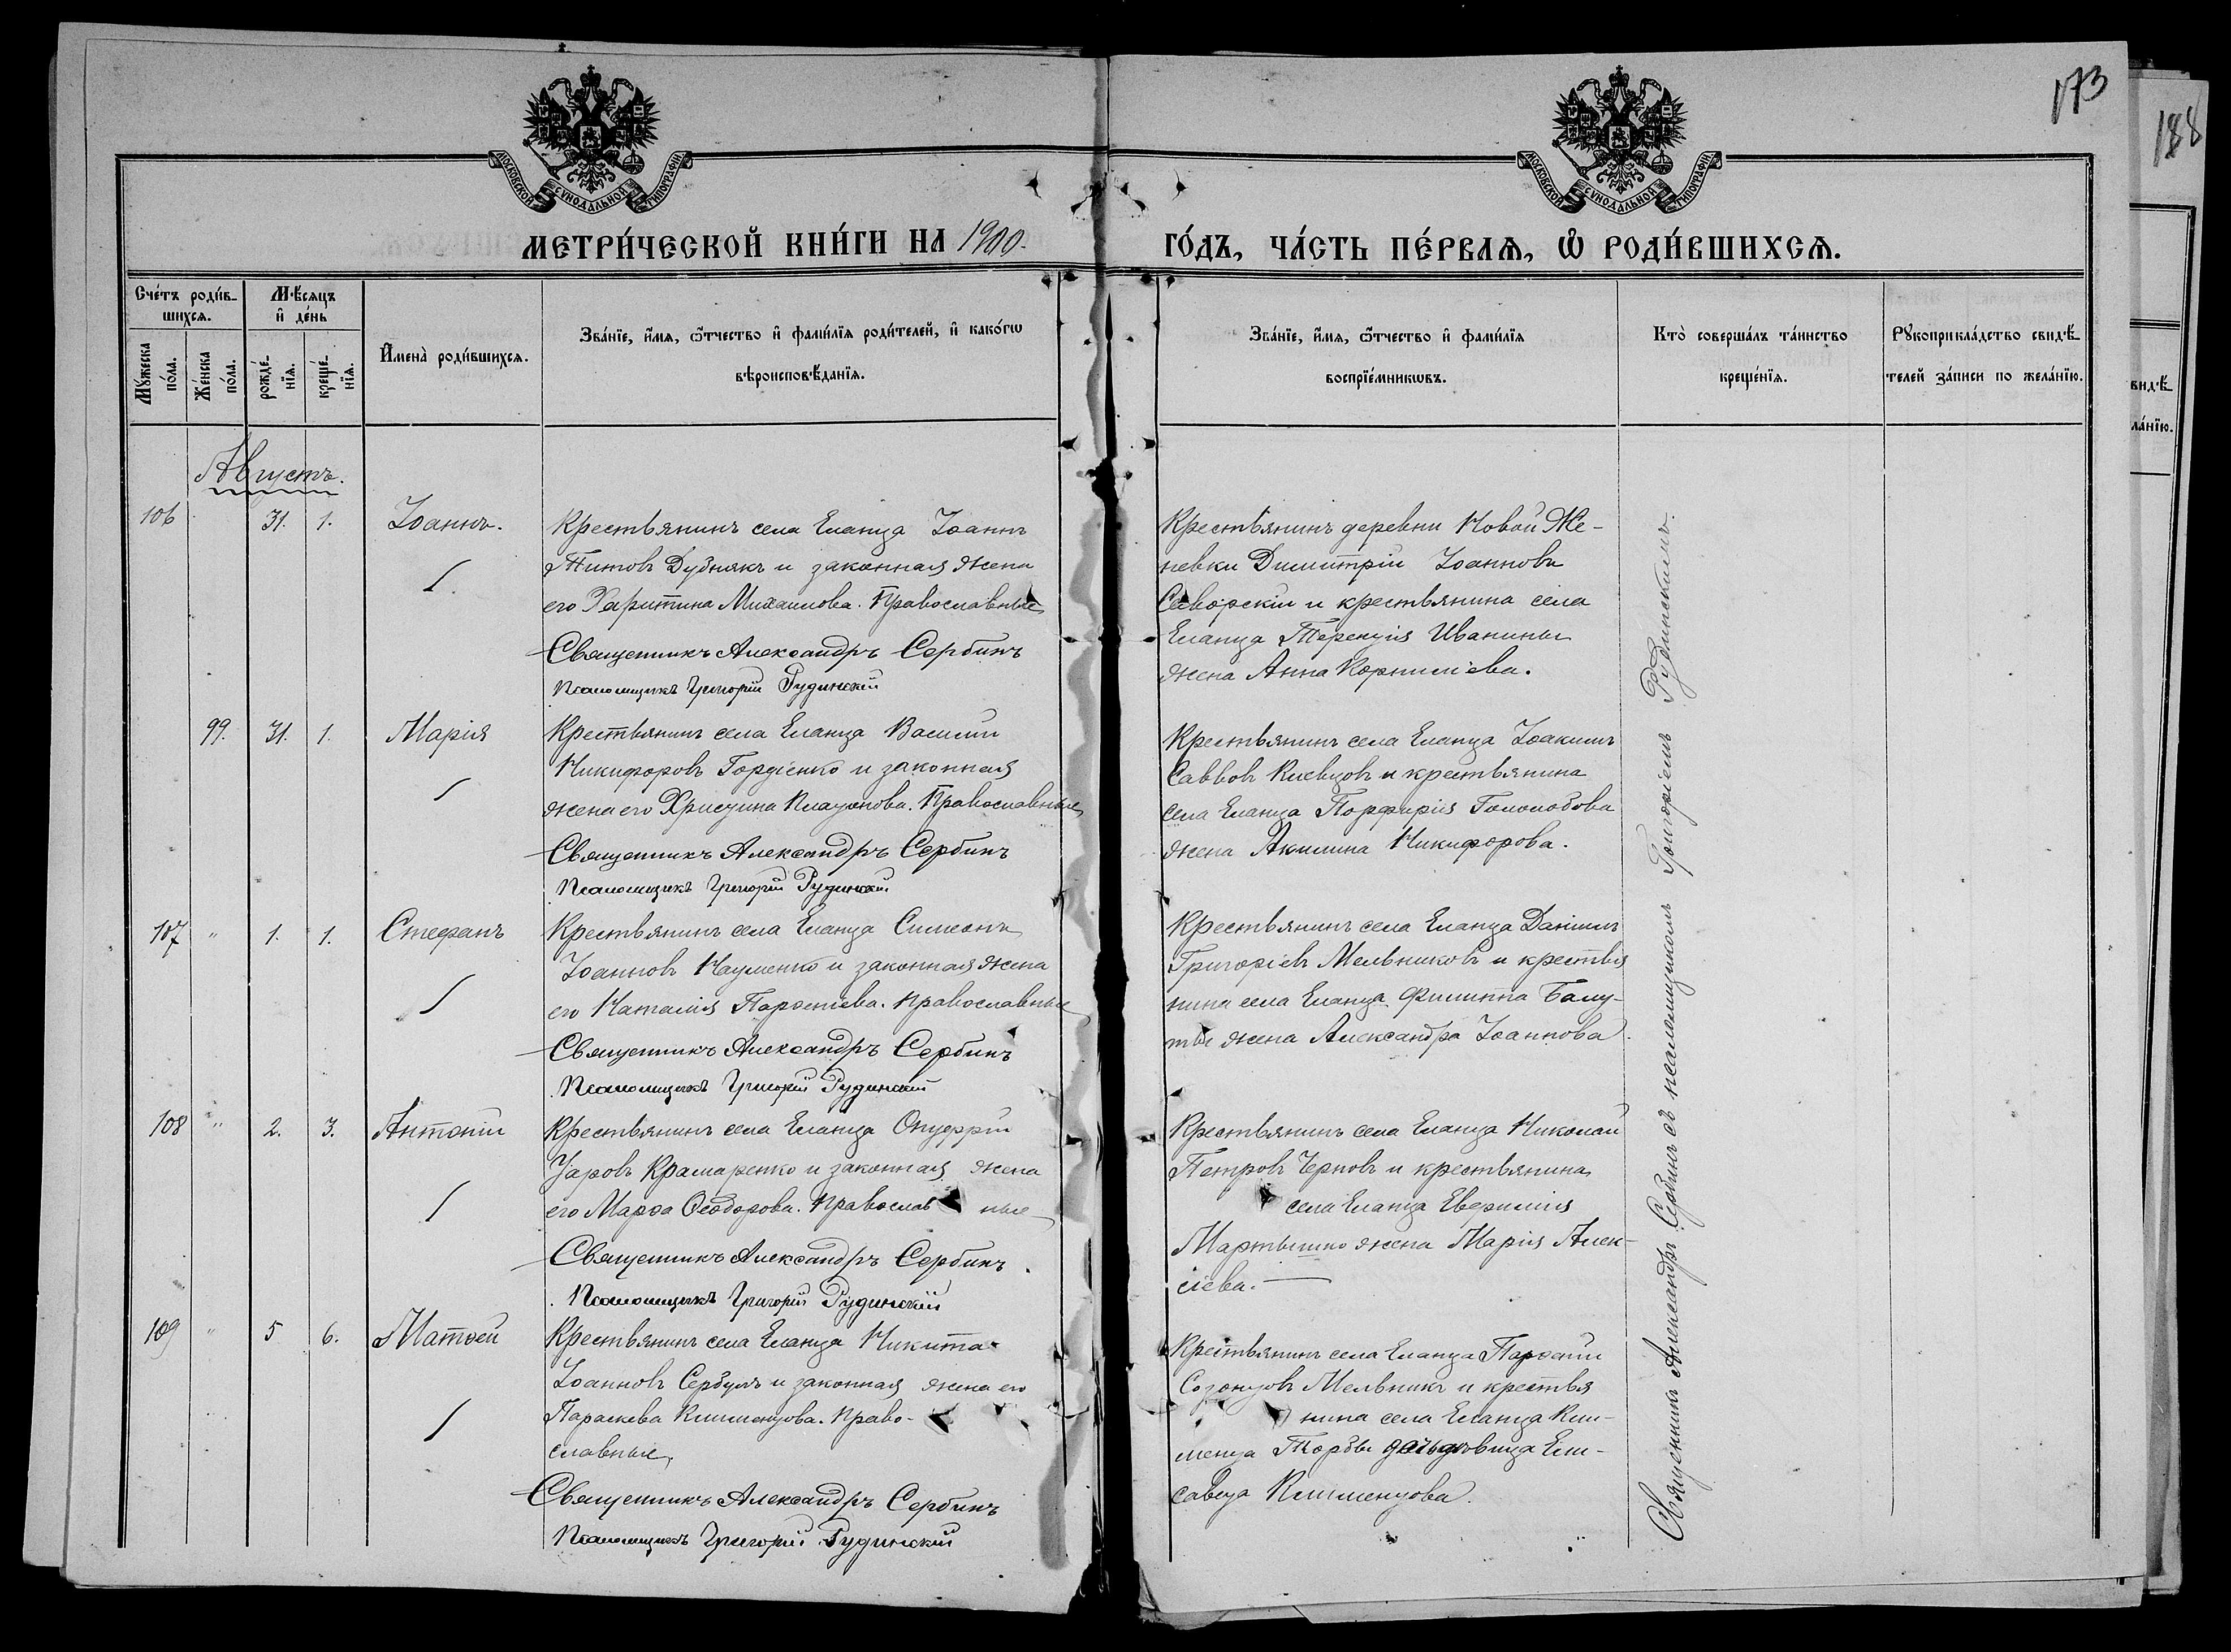 173
188
МОСКОВСКОЙ СѴНОДАЛЬНОЙ ТИПОГРАФІИ
МОСКОВСКОЙ СѴНОДАЛЬНОЙ ТИПОГРАФІИ
МЕТРИ́ЧЕСКОЙ КНИ́ГИ НА 1900.
ГО́ДЪ, ЧА́СТЬ ПЕ́РВАѦ, Ѡ҆ РОДИ́ВШИХСѦ.
Сче́тъ роди́в-
шихсѧ.
Мѣ́сяцъ
и҆ де́нь
Мꙋ́жеска
по́ла.
Же́нска
по́ла.
рожде́-
нїѧ.
креще́-
нїѧ.
И҆мена̀ роди́вшихсѧ.
Зва́нїе, и҆́мѧ, ѻ҆́тчество и҆ фами́лїѧ роди́телей, и҆ како́гѡ
вѣроисповѣ́данїѧ.
Зва́нїе, и҆́мѧ, ѻ҆́тчество и҆ фами́лїѧ
воспрїе́мникѡвъ.
Кто̀ соверша́лъ та́инство
креще́нїѧ.
Рꙋкоприкла́дство свидѣ́-
телей за́писи по жела́нїю.
видѣ́-
ла́нїю.
Августъ.
106 31. 1. Іоаннъ.
Крестьянинъ села Еланца Іоаннъ
Титовъ Дубнякъ и законная жена
его Харитина Михаилова. Православные
Священникъ Александръ Сербинъ
Псаломщикъ Григорій Рудинскій
Крестьянинъ деревни Новой Же-
невки Димитрій Іоанновъ
Сѣворскій и крестьянина села
Еланца Терентія Иванины
жена Анна Корниліева.
99. 31. 1. Марія
Крестьянинъ села Еланца Василій
Никифоровъ Гордіенко и законная
жена его Христина Платонова. Православные
Священникъ Александръ Сербинъ
Псаломщикъ Григорій Рудинскій
Крестьянинъ села Еланца Іоакимъ
Саввовъ Киевцовъ и крестьянина
села Еланца Порфирія Гололобова
жена Акилина Никифорова.
107 " 1. 1. Стефанъ
Крестьянинъ села Еланца Симеонъ
Іоанновъ Науменко и законная жена
его Наталія Парѳеніева. Православные
Священникъ Александръ Сербинъ
Псаломщикъ Григорій Рудинскій
Крестьянинъ села Еланца Даніилъ
Григоріевъ Мельниковъ и крестья
нина села Еланца Филиппа Балу-
ты жена Александра Іоаннова.
108 " 2. 3. Антоній
Крестьянинъ села Еланца Онуфрій
Уаровъ Крамаренко и законная жена
его Марѳа Ѳеодорова. Православные
Священникъ Александръ Сербинъ.
Псаломщикъ Григорій Рудинскій
Крестьянинъ села Еланца Николай
Петровъ Черновъ и крестьянина
села Еланца Евфимія
Мартышко жена Марія Алек-
сіева.
109 " 5 6. Матѳей
Крестьянинъ села Еланца Никита
Іоанновъ Сербулъ и законная жена его
Параскева Климентова. Право-
славные.
Священникъ Александръ Сербинъ
Псаломщикъ Григорій Рудинскій
Крестьянинъ села Еланца Парѳеній
Созонтовъ Мельникъ и крестья
нина села Еланца Кли-
мента Торбы Ели-
савета Климентова.
Священникъ Александръ Сербинъ съ псаломщикомъ Григоріемъ Рудинскимъ.